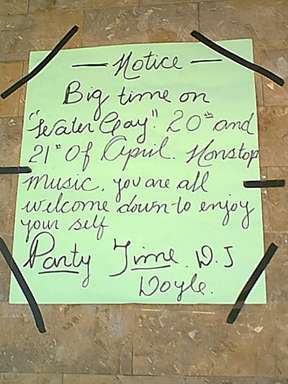 — Notice —
Big time on
"Water Bay" 20th and
21st Of April. Nonstop
music. you are all
welcome down to enjoy
your self
Party Time D.J
Doyle.